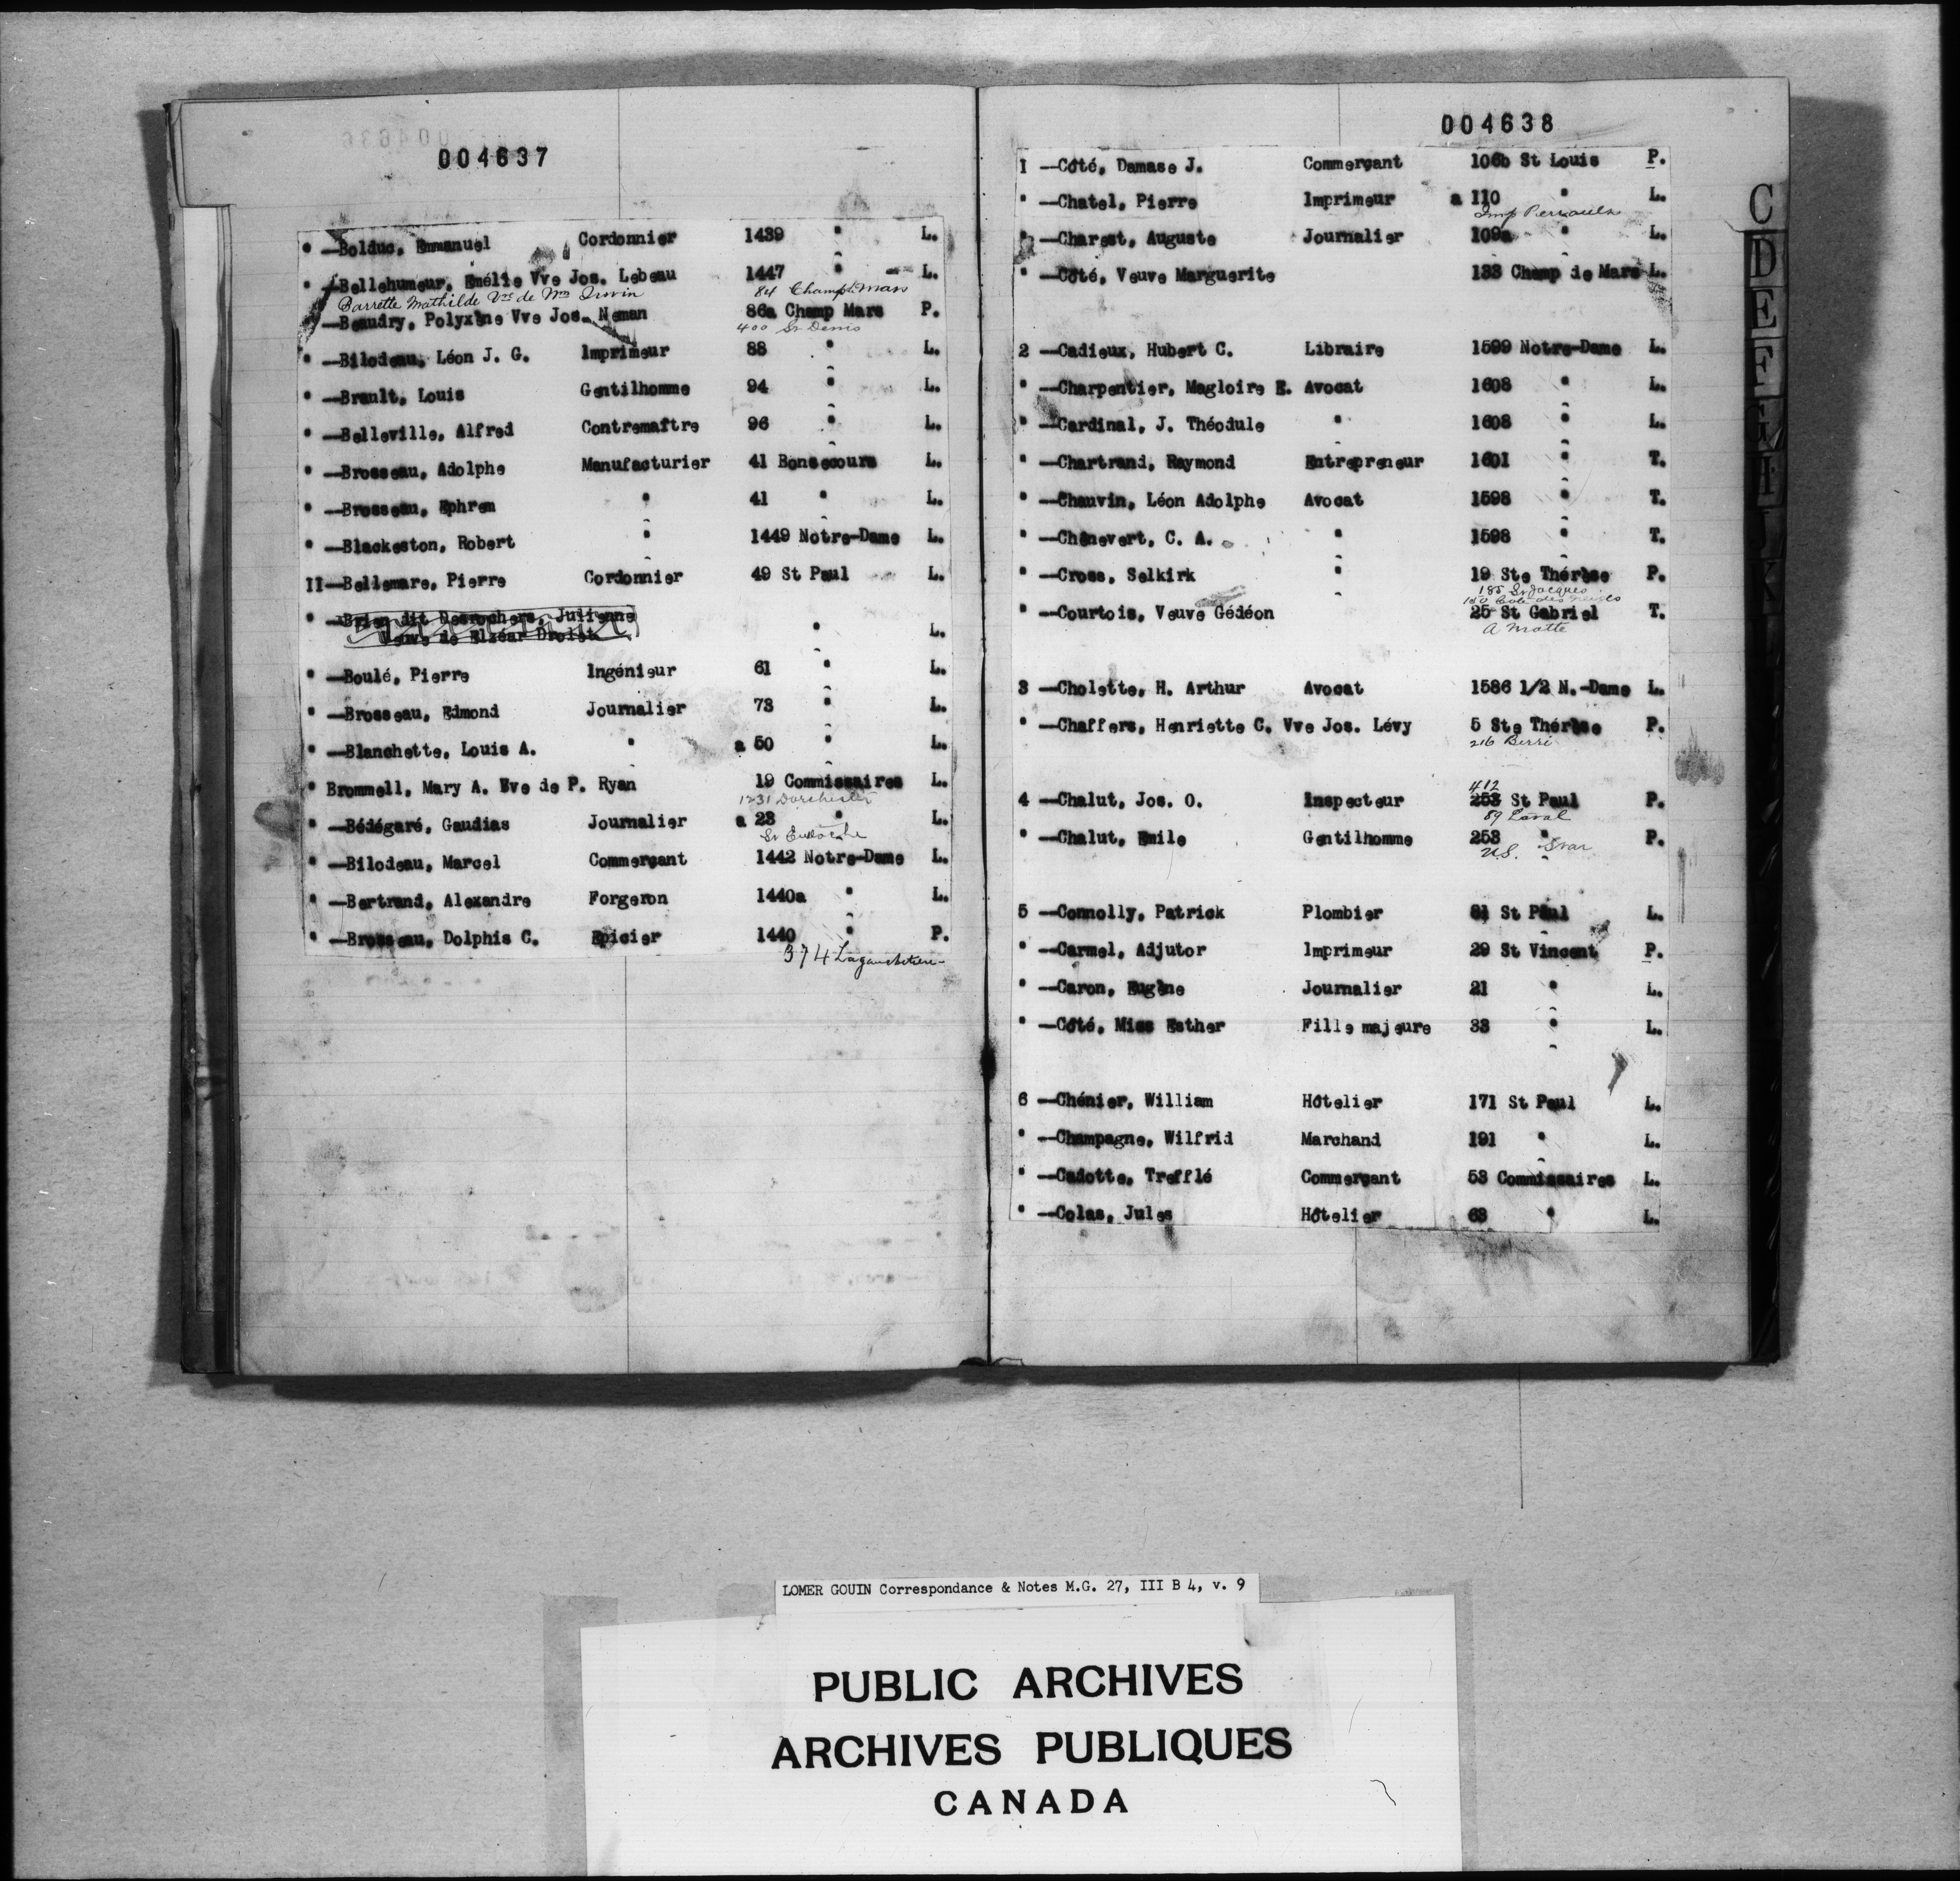 004637
" —Bolduc, Emmanuel Cordonnier 1439 " L.
" —Bellehumeur, Emélie Vve Jos. Lebeau 1447 " L.
Barrette Mathilde Vve de Wm Irwin 84 Champ Mars
—Beaudry, Polyxène Vve Jos. Neman 86a Champ Mars P.
400 St Denis
" —Bilodeau, Léon J. G. Imprimeur 88 " L.
" —Brault, Louis Gentilhomme 94 " L.
" —Belleville, Alfred Contremaître 96 " L.
" —Brosseau, Adolphe Manufacturier 41 Bonsecours L.
" —Brosseau, Ephrem " 41 " L.
" —Blackeston, Robert " 1449 Notre-Dame L.
II—Bellemare, Pierre Cordonnier 49 St Paul L.
" —Brien dit Desrochers, Julienne
Veuve de Elzéar Drolet " L.
" —Boulé, Pierre Ingénieur 61 " L.
" —Brosseau, Edmond Journalier 73 " L.
" —Blanchette, Louis A. " a 50 " L.
" Brommell, Mary A. Vve de P. Ryan 19 Commissaires L.
1231 Dorchester
" —Bédégaré, Gaudias Journalier a 23 " L.
St
" —Bilodeau, Marcel Commerçant 1442 Notre-Dame L.
" —Bertrand, Alexandre Forgeron 1440a " L.
" —Brosseau, Dolphis C. Epicier 1440 " P.
374 Lagauchetière
004638
1 —Côté, Damase J. Commerçant 106b St Louis P.
" —Chatel, Pierre Imprimeur a 110 " L.
Imp Perrault
" —Charest, Auguste Journalier 109a " L.
" —Côté, Veuve Marguerite 133 Champ de Mars L.
2 —Cadieux, Hubert C. Libraire 1599 Notre-Dame L.
" —Charpentier, Magloire E. Avocat 1608 " L.
" —Cardinal, J. Théodule " 1608 " L.
" —Chartrand, Raymond Entrepreneur 1601 " T.
" —Chauvin, Léon Adolphe Avocat 1598 " T.
" —Chênevert, C. A. " 1598 " T.
" —Cross, Selkirk " 19 Ste Thérèse P.
185 St Jacques
150 Cote des Neiges
" —Courtois, Veuve Gédéon 25 St Gabriel T.
A Matte
3 —Cholette, H. Arthur Avocat 1586 1/2 N.-Dame L.
" —Chaffers, Henriette C. Vve Jos. Lévy 5 Ste Thérèse P.
216 Berri
412
4 —Chalut, Jos. O. Inspecteur 253 St Paul P.
89 Laval
" —Chalut, Emile Gentilhomme 253 " P.
U.S.
5 —Connolly, Patrick Plombier 81 St Paul L.
" —Carmel, Adjutor Imprimeur 29 St Vincent P.
" —Caron, Eugène Journalier 21 " L.
" —Côté, Miss Esther Fille majeure 33 " L.
6 —Chénier, William Hôtelier 171 St Paul L.
" —Champagne, Wilfrid Marchand 191 " L.
" —Cadotte, Trefflé Commerçant 53 Commissaires L.
" —Colas, Jules Hôtelier 63 " L.
C
D
E
F
I
J
K
LOMER GOUIN Correspondance & Notes M.G. 27, III B 4, v. 9
PUBLIC ARCHIVES
ARCHIVES PUBLIQUES
CANADA